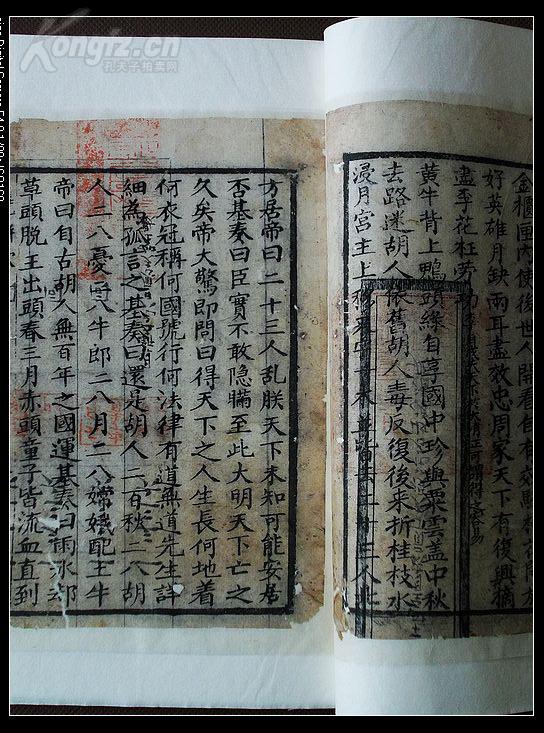 Kongfz.cn
孔夫子拍卖网
金櫃匣內使後世人開看自有
好英雄月缺兩耳盡效忠周家天下有復興摘
盡李花枉勞功
黃牛背上鴨頭綠自享國中珍與粟雲蓋中秋
去路迷胡人依舊胡人毒反復後來折桂枝水
浸月宮主上二十三人
方居帝曰二十三人乱朕天下未知可能安居
否基奏曰臣實不敢隐瞞至此大明天下亡之
久矣帝大驚即問曰得天下之人生長何地着
何衣冠稱何國號行何法律有道無道先生詳
細為孤言之基奏曰還是胡人二百秋二八胡
人二八憂二八牛郎二八月二八嫦娥配王牛
帝曰自古胡人無百年之國運基奏曰雨水
草頭脫王出頭春三月赤頭童子皆流血直到